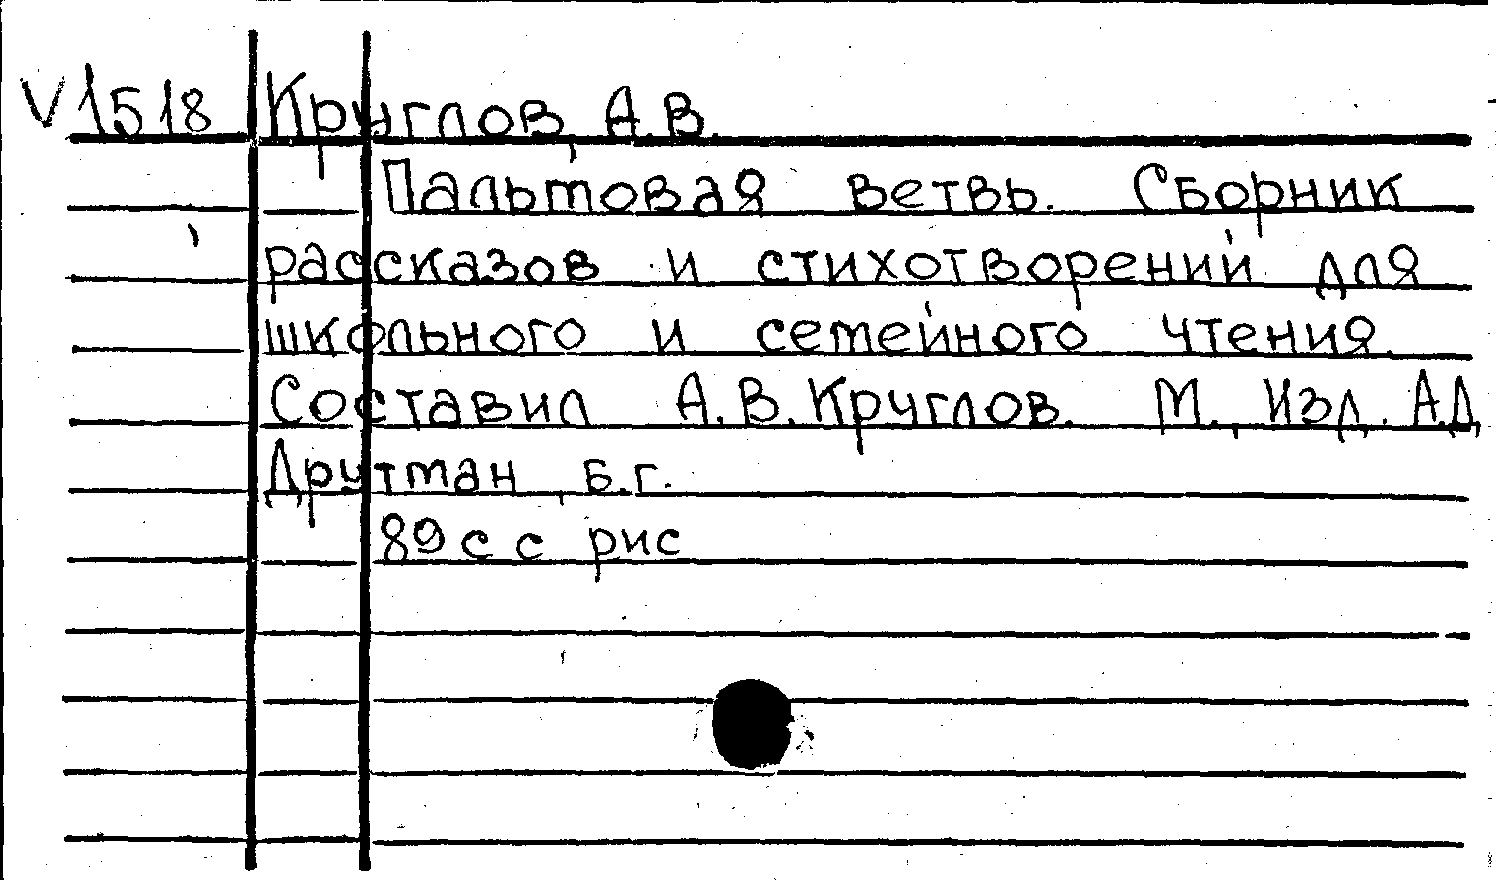 V 1518 Круглов, А.В.
Пальтовая ветвь. Сборник
рассказов и стихотворений для
школьного и семейного чтения.
Составил А.В.Круглов. М., Изд. А.Д.
Друтман, б.г.
89 с с рис